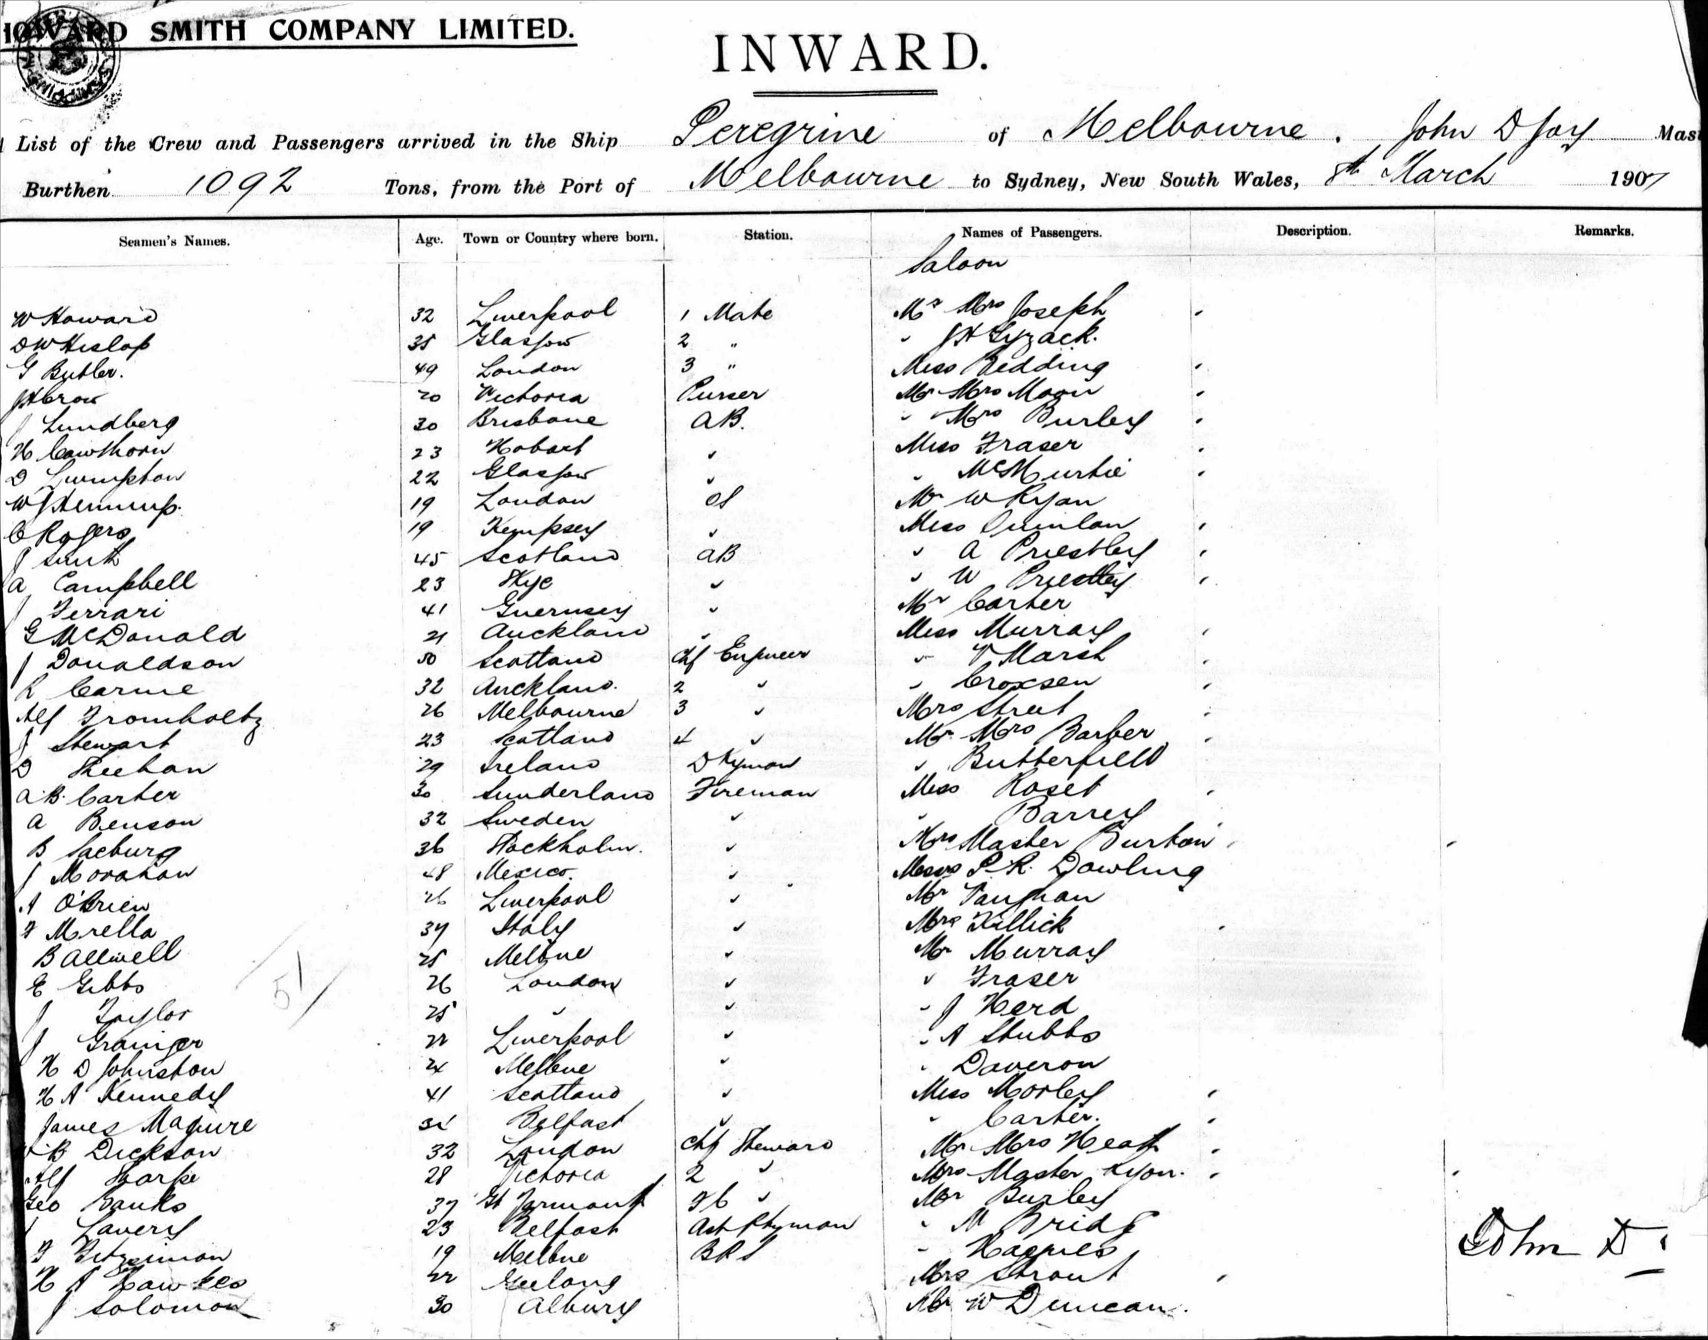 HOWARD SMITH COMPANY LIMITED.
INWARD.
List of the Crew and Passengers arrived in the Ship Peregrine of Melbourne. John D Joy Mas
Burthen 1092 Tons, from the Port of Melbourne to Sydney, New South Wales, 8th March 1907
Seamen's Names. Age. Town or Country where born. Station. Names of Passengers. Description. Remarks.
Saloon
W Howard 32 Liverpool 1 Mate Mr Mrs Joseph
D W Hislop 35 Glasgow 2 " " J H Gyzack.
G Butler. 49 London 3 " Miss Redding
J H Crow 20 Victoria Purser Mr Mrs Moon
J Lundberg 30 Brisbane AB. " Mrs Burley
H Cawthorn 23 Hobart " Miss Fraser
D Lumpston 22 Glasgow " " McMurtie
W J 19 London OS Mr W Ryan
C Rogers 19 Kempsey " Miss Quinlan
J Smith 45 Scotland AB " A Priestley
A Campbell 23 Skye " " W Priestley
J Ferrari 41 Guernsey " Mr Carter
G McDonald 21 Auckland " Miss Murray
J Donaldson 50 Scotland Chf Engineer " Marsh
R Carme 32 Auckland. 2 " " Croxsen
Alf Fromholtz 26 Melbourne 3 " Mrs Street
J Stewart 23 Scotland 4 " Mr Mrs Barber
D Sheehan 29 Ireland Dkyman " Butterfield
A B Carter 30 Sunderland Fireman Miss Roset
A Benson 32 Sweden " " Barrey
B Saeburg 36 Stockholm. " Mrs Master Burton
J Morahan 48 Mexico. " Messrs P. R. Dowling
A O'Brien 26 Liverpool " Mr Vaughan
F Mrella 39 Italy " Mrs Killick
B Allwell 25 Melbne " Mr Murray
E Gibbs 26 London " " Fraser
J Taylor 25 " " " J Herd
J Grainger 22 Liverpool " " A Stubbs
H D Johnston 24 Melbne " " Daveron
H A Kennedy 41 Scotland " Miss Morley
James Maguire Belfast " " Carter.
B Dickson 32 London Chf Steward Mr Mrs Heath
Alf Sharpe 28 Victoria 2 " Mrs Master Ryon.
Geo Banks 37 Gt Yarmouth " Mr Burley
Lavery 23 Belfast Ast Ptyman " Bridg
F Fitzsimon 19 Melbne BRS "
H J Hawkes 22 Geelong Mrs Strout
J Solomon 30 Albury Mr W Duncan.
51
John D.